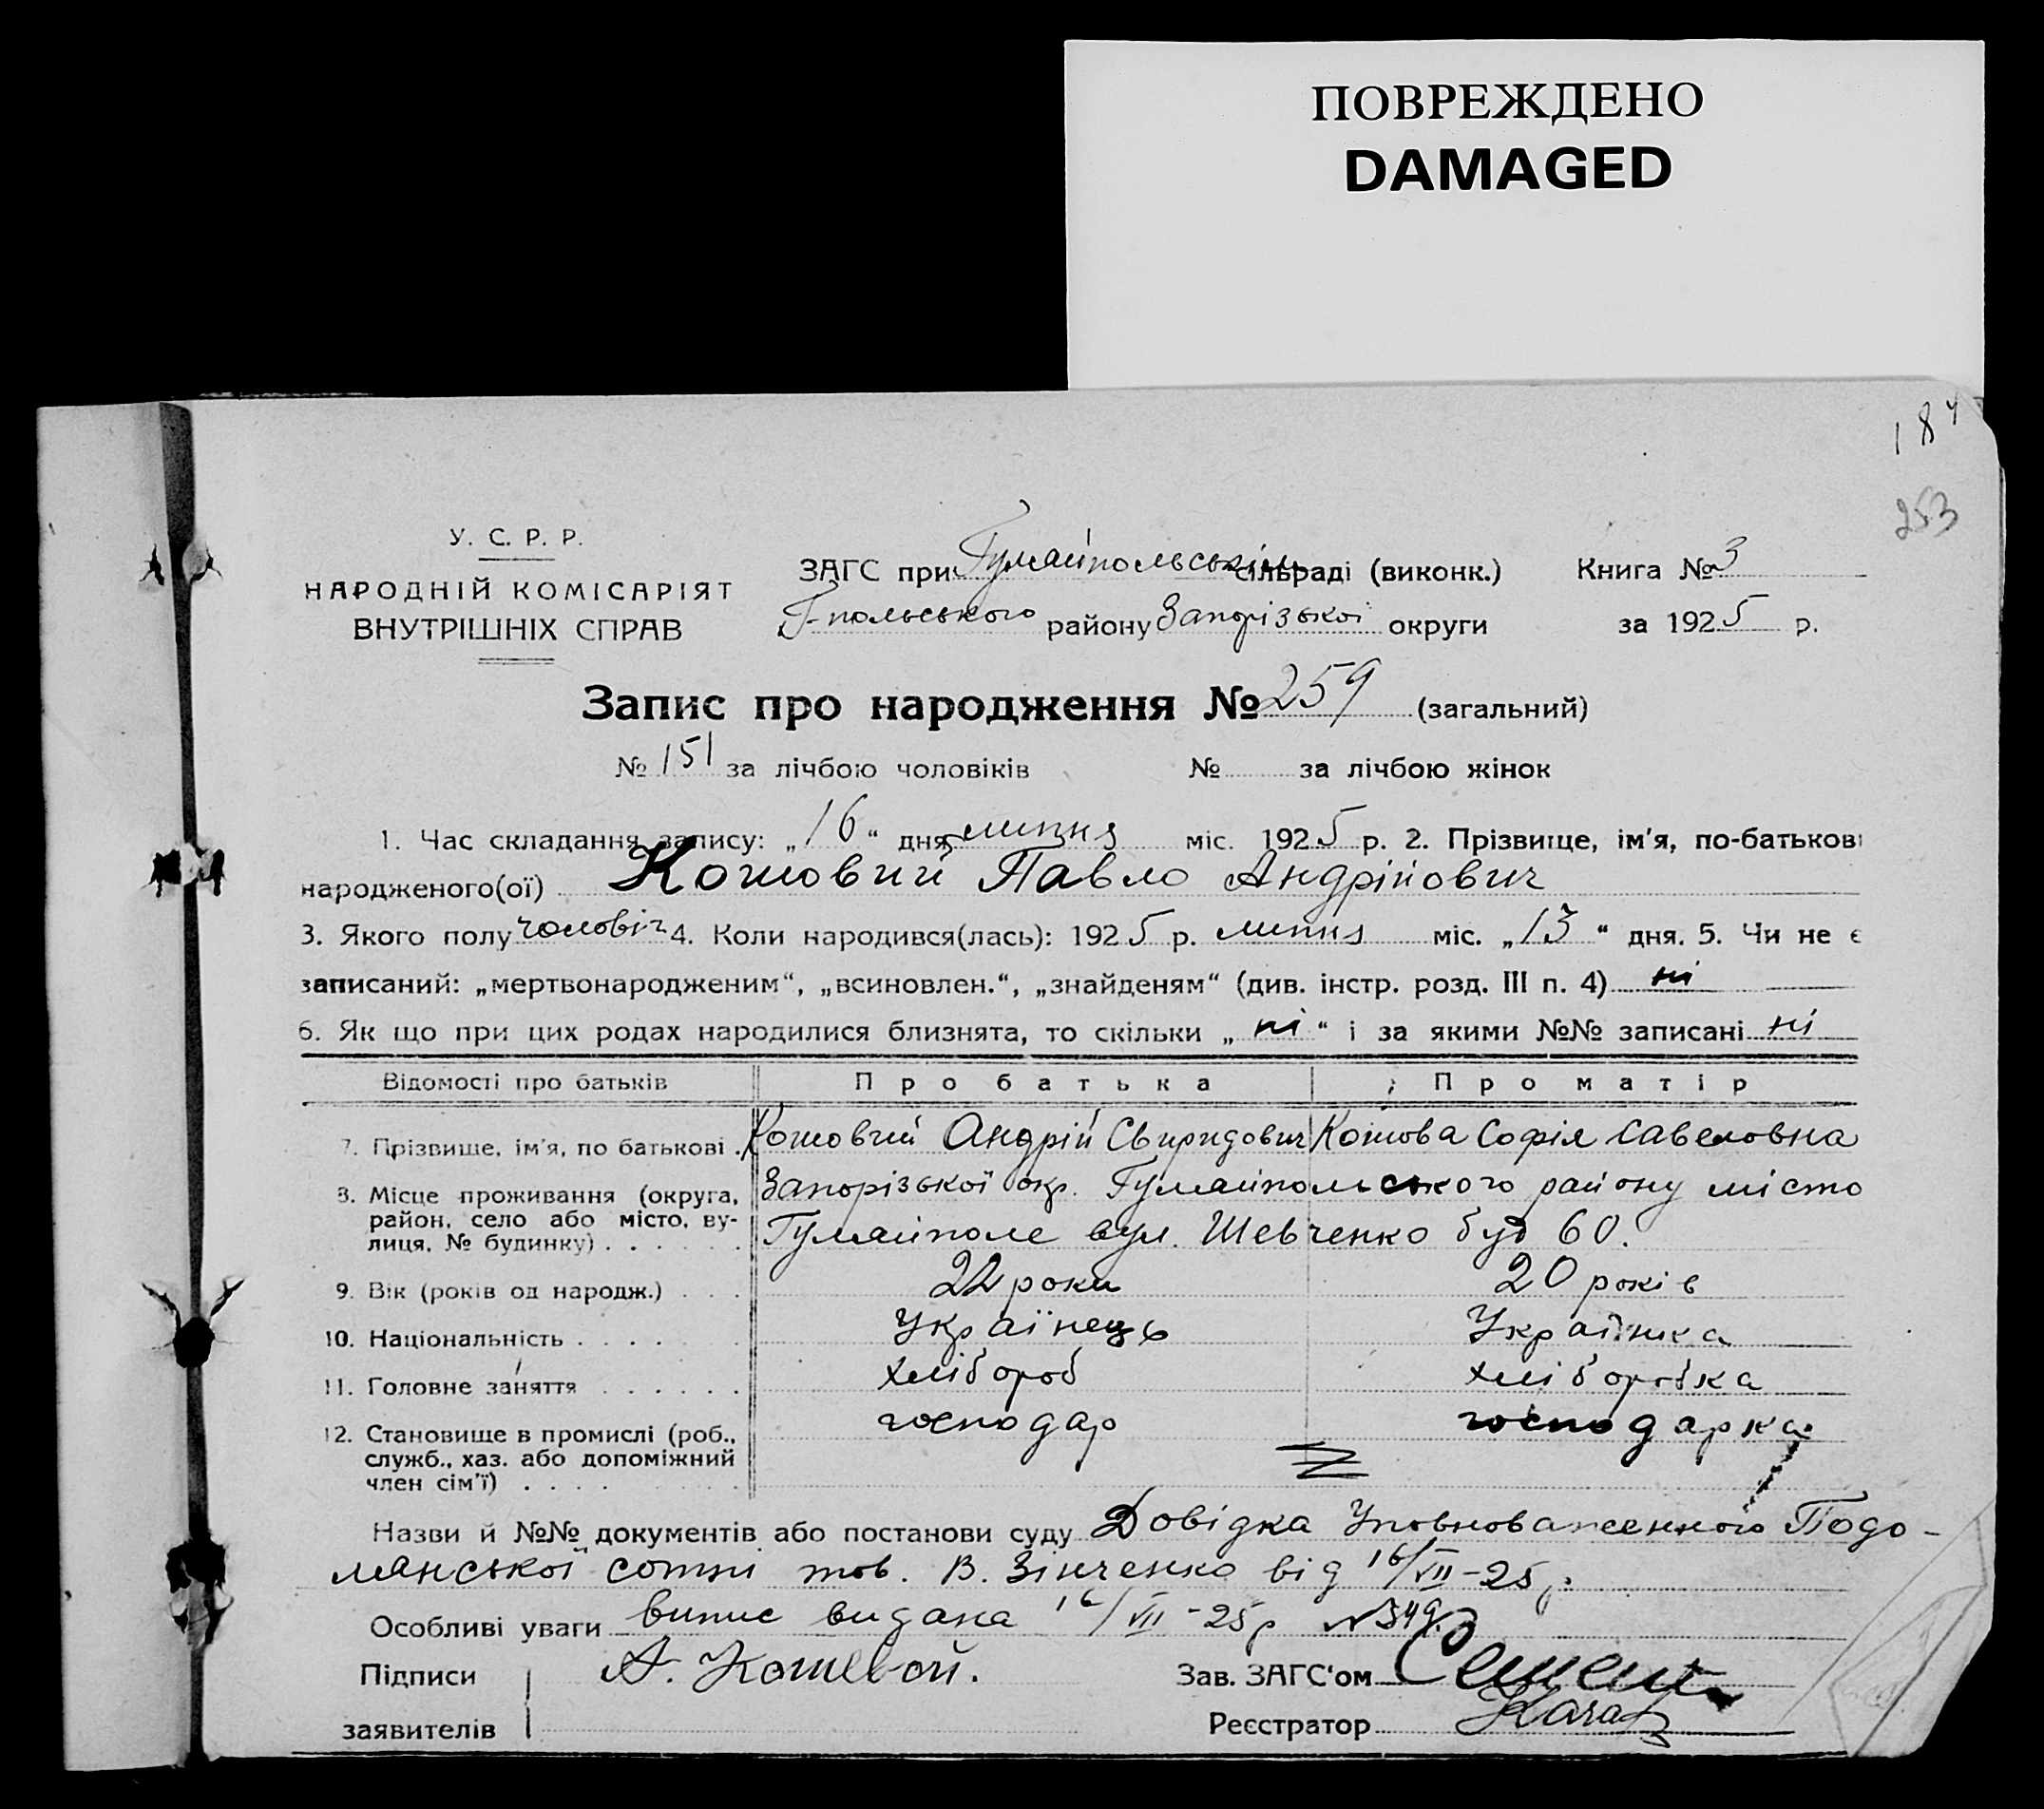 ПОВРЕЖДЕНО
DAMAGED
184
253
У. С. Р. Р.
НАРОДНІЙ КОМІСАРІЯТ
ВНУТРІШНІХ СПРАВ
ЗАГС при Гуляйпольській сільраді (виконк.) Книга № 3
Г-польського району Запорізької округи за 1925 р.
Запис про народження № 259 (загальний)
№ 151 за лічбою чоловіків № за лічбою жінок
1. Час складання запису: „16“ дня липня міс. 1925 р. 2. Прізвище, ім'я, по-батькові
народженого(ої) Кошовий Павло Андрійович
3. Якого полу чоловіч 4. Коли народився(лась): 1925 р. липня міс. „13“ дня. 5. Чи не є
записаний: „мертвонародженим“, „всиновлен.“, „знайденям“ (див. інстр. розд. III п. 4) ні
6. Як що при цих родах народилися близнята, то скільки „ні“ і за якими №№ записані ні
Відомості про батьків Про батька Про матір
7. Прізвище, ім'я, по батькові Кошовий Андрій Свиридович Кошова Софія Савеловна
8. Місце проживання (округа, Запорізької окр. Гуляйпольського району місто
район, село або місто, ву-
лиця, № будинку) Гуляйполе вул. Шевченко буд 60.
9. Вік (років од народж.) 22 роки 20 років
10. Національність Українець Українка
11. Головне заняття хлібороб хліборобка
12. Становище в промислі (роб., господар господарка
служб., хаз. або допоміжний
член сім'ї)
Назви й №№ документів або постанови суду Довідка Уповноваженного Подо-
лянської сотні тов. В. Зінченко від 16/VII-25 р.
Особливі уваги випис видана 16/VII-25 р №349
Підписи А. Кошевой. Зав. ЗАГС'ом
заявителів Реєстратор